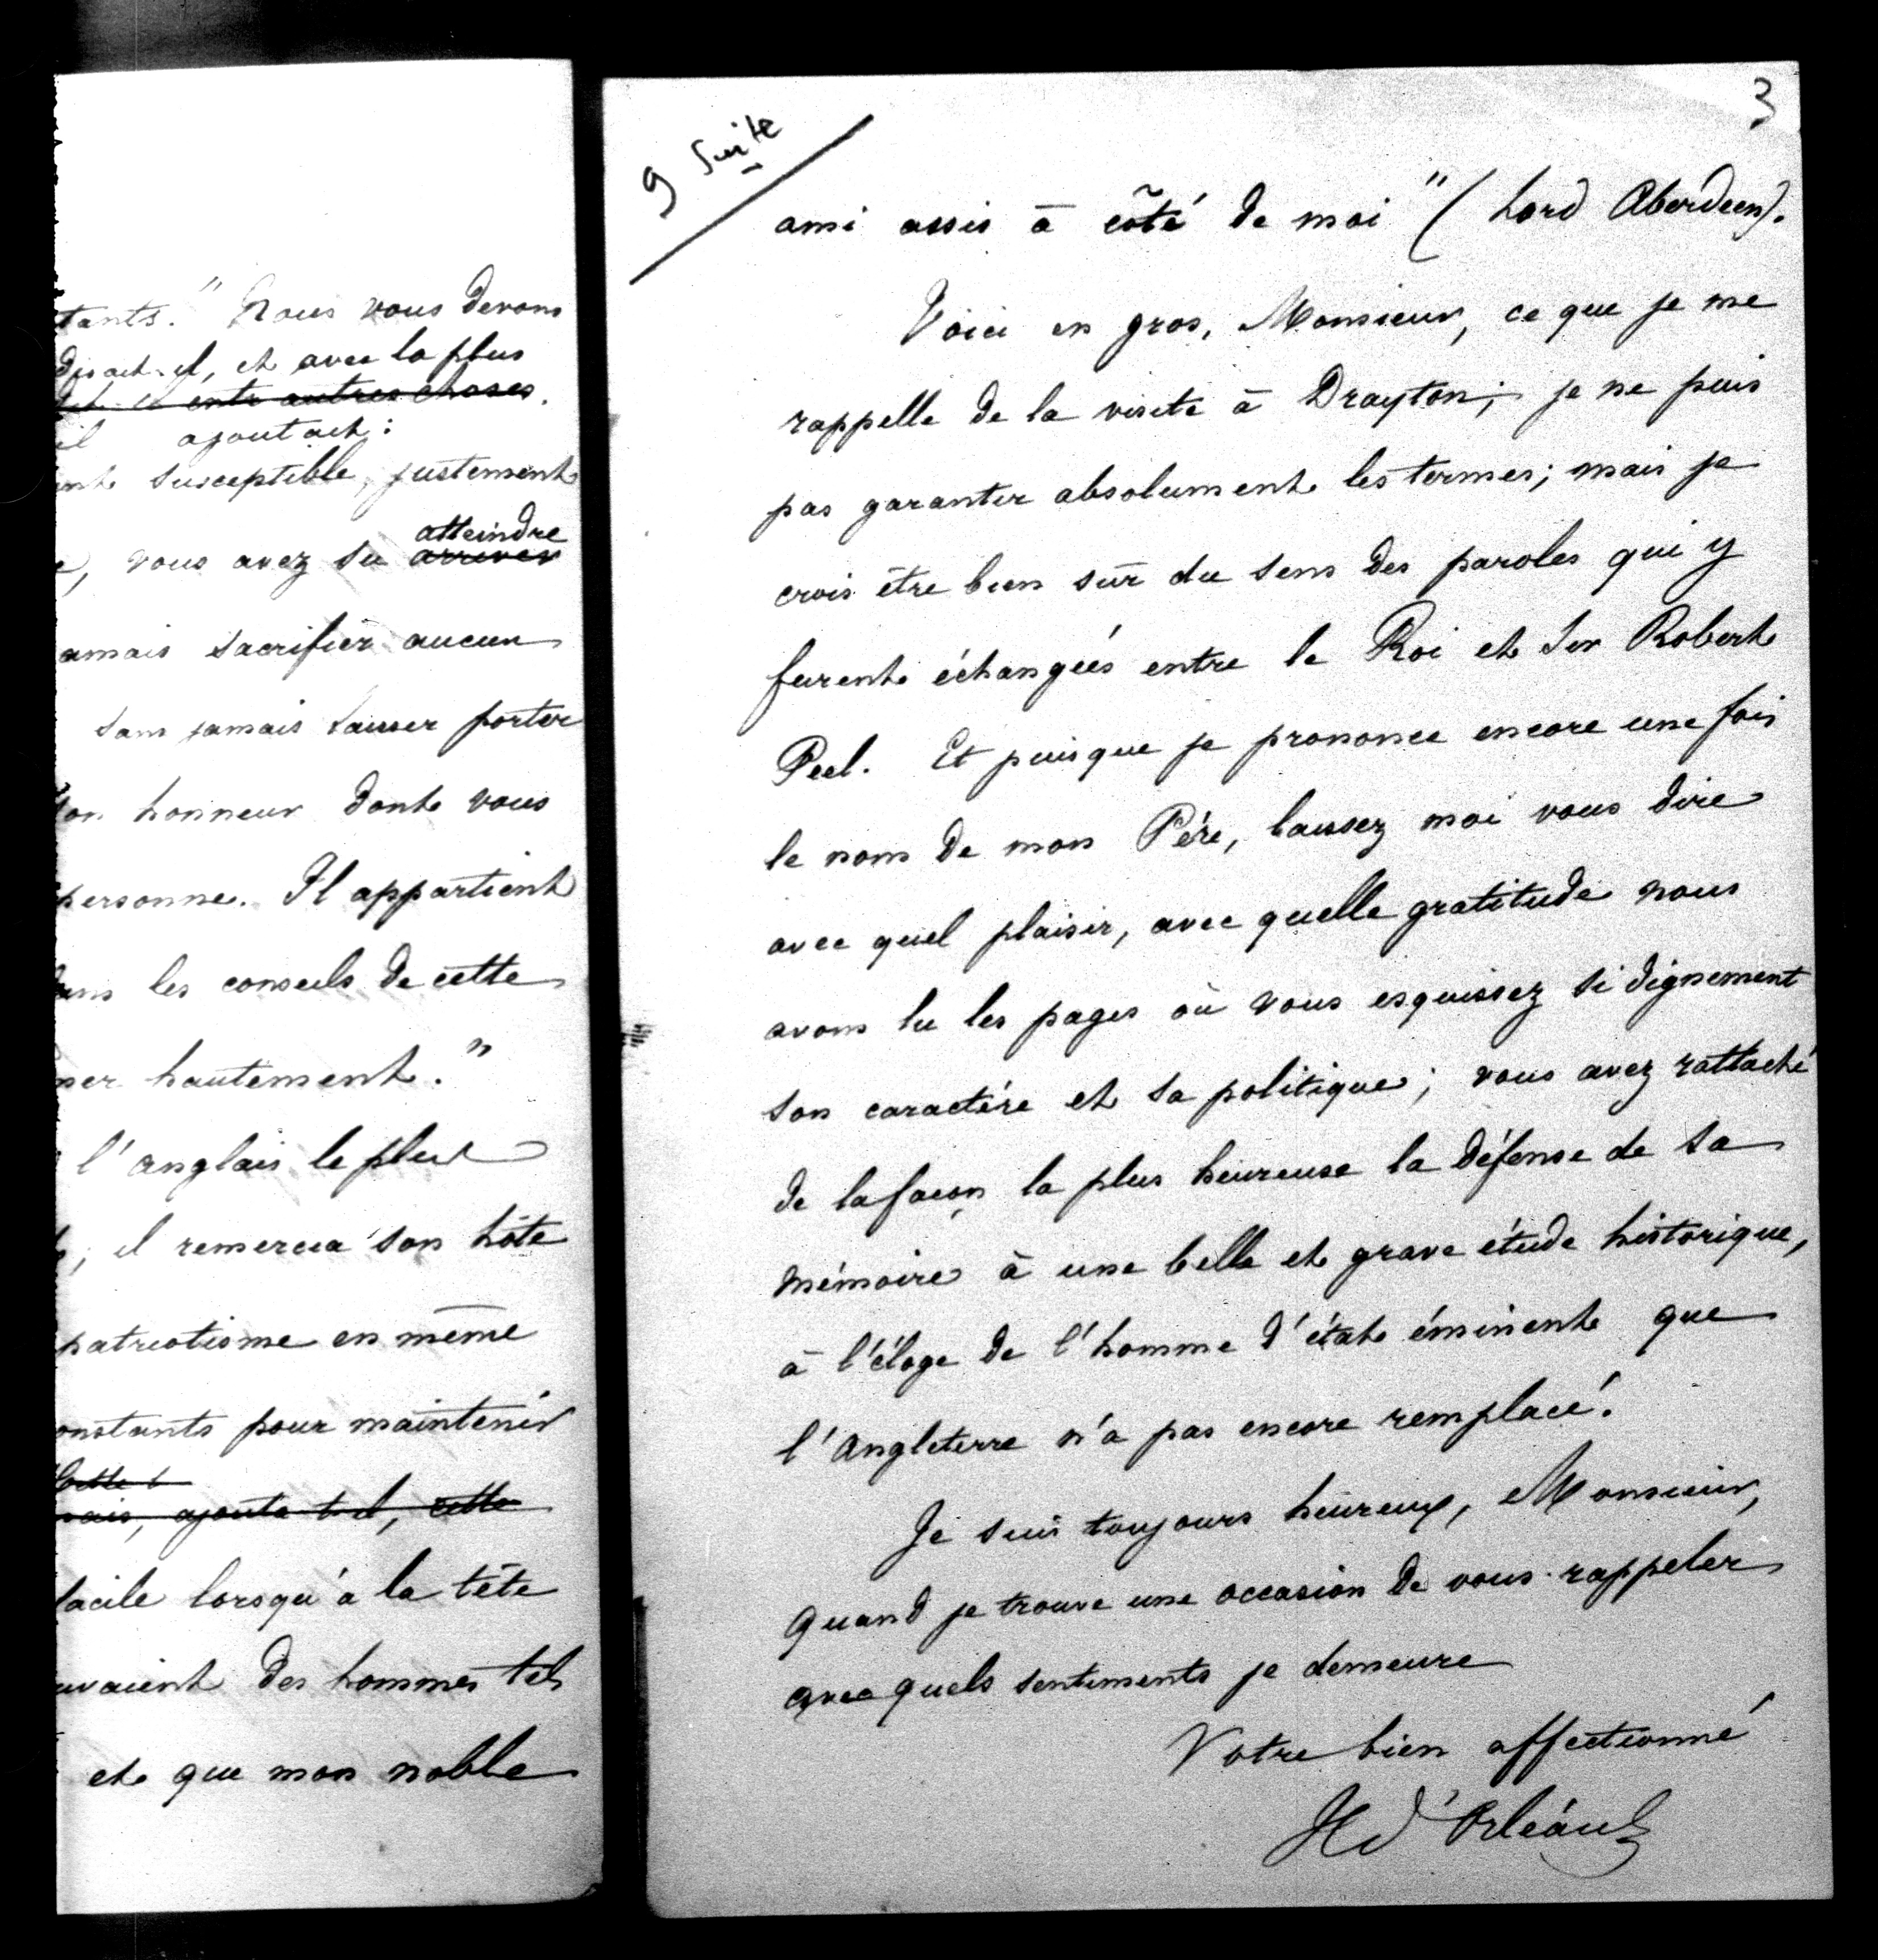 tants." Nous vous devons
disait-il, et avec la plus
entr autres choses.
il ajoutait:
susceptible, justement
atteindre
e, vous avez su arriver
amais sacrifier aucun
sans jamais laisser porter
on honneur dont vous
personne. Il appartient
ans les conseils de cette
mer hautement."
l'anglais le plus
il remercia son hôte
patriotisme en même
onstants pour maintenir
Cette t
mais, ajouta t-il, cette
facile lorsqu'à la tête
uvaient des hommes tels
et que mon noble
3
9 Suite
ami assis à côté de moi" (Lord Aberdeen).
Voici en gros, Monsieur, ce que je me
rappelle de la visite à Drayton; je ne puis
pas garantir absolument les termes; mais je
crois être bien sûr du sens des paroles qui y
furent échangées entre le Roi et Sir Robert
Peel. Et puisque je prononce encore une fois
le nom de mon Père, laissez moi vous dire
avec quel plaisir, avec quelle gratitude nous
avons lu les pages où vous esquissez si dignement
son caractère et sa politique; vous avez rattaché
de la façon la plus heureuse la défense de sa
mémoire à une belle et grave étude historique,
à l'éloge de l'homme d'état éminent que
l'Angleterre n'a pas encore remplacé.
Je suis toujours heureux, Monsieur,
quand je trouve une occasion de vous rappeler
avec quels sentiments je demeure
Votre bien affectionné
H d'Orléans